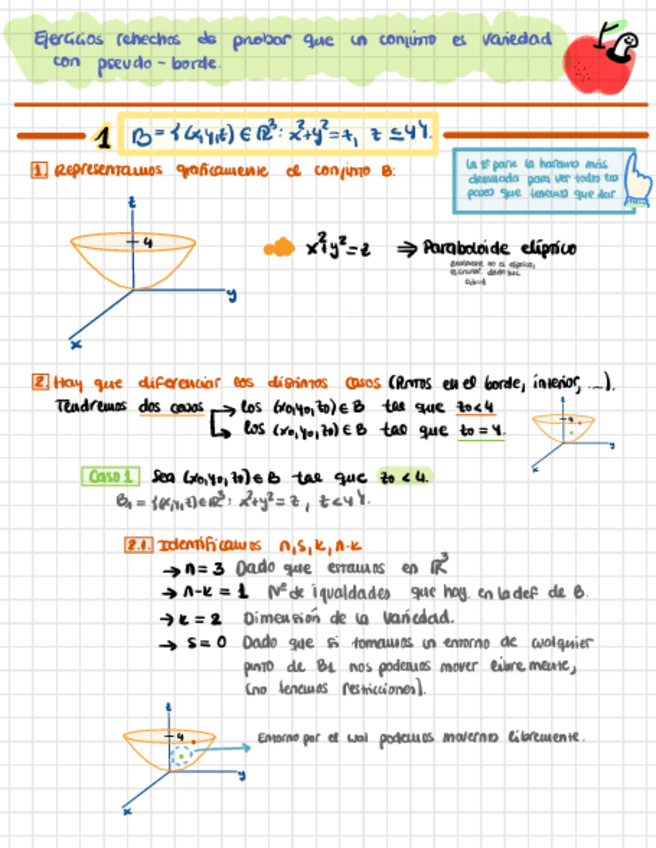 Ejercicios rehechos de probar que un conjunto es variedad
con pseudo-borde.
1 B = {(x,y,z) ∈ ℝ³: x²+y²=z, z ≤ 4}.
1 Representamos gráficamente el conjunto B:
La 1ª parte la haremos más
detallada para ver todos los
pasos que tenemos que dar
z
4
y
x
x²+y²=z ⇒ Paraboloide elíptico
2 Hay que diferenciar los distintos casos (Puntos en el borde, interior, ...).
Tendremos dos casos → los (x0,y0,z0) ∈ B tal que z0<4
→ los (x0,y0,z0) ∈ B tal que z0=4.
z
4
y
x
Caso 1 Sea (x0,y0,z0) ∈ B tal que z0 < 4.
B1 = {(x,y,z) ∈ ℝ³: x²+y²=z, z<4}.
2.1. Identificamos n,s,k,n-k
→ n=3 Dado que estamos en ℝ³
→ n-k = 1 Nº de igualdades que hay en la def de B.
→ k = 2 Dimensión de la variedad.
→ s=0 Dado que si tomamos un entorno de cualquier
punto de B1 nos podemos mover libremente,
(no tenemos restricciones).
z
4
y
x
Entorno por el cual podemos movernos libremente.